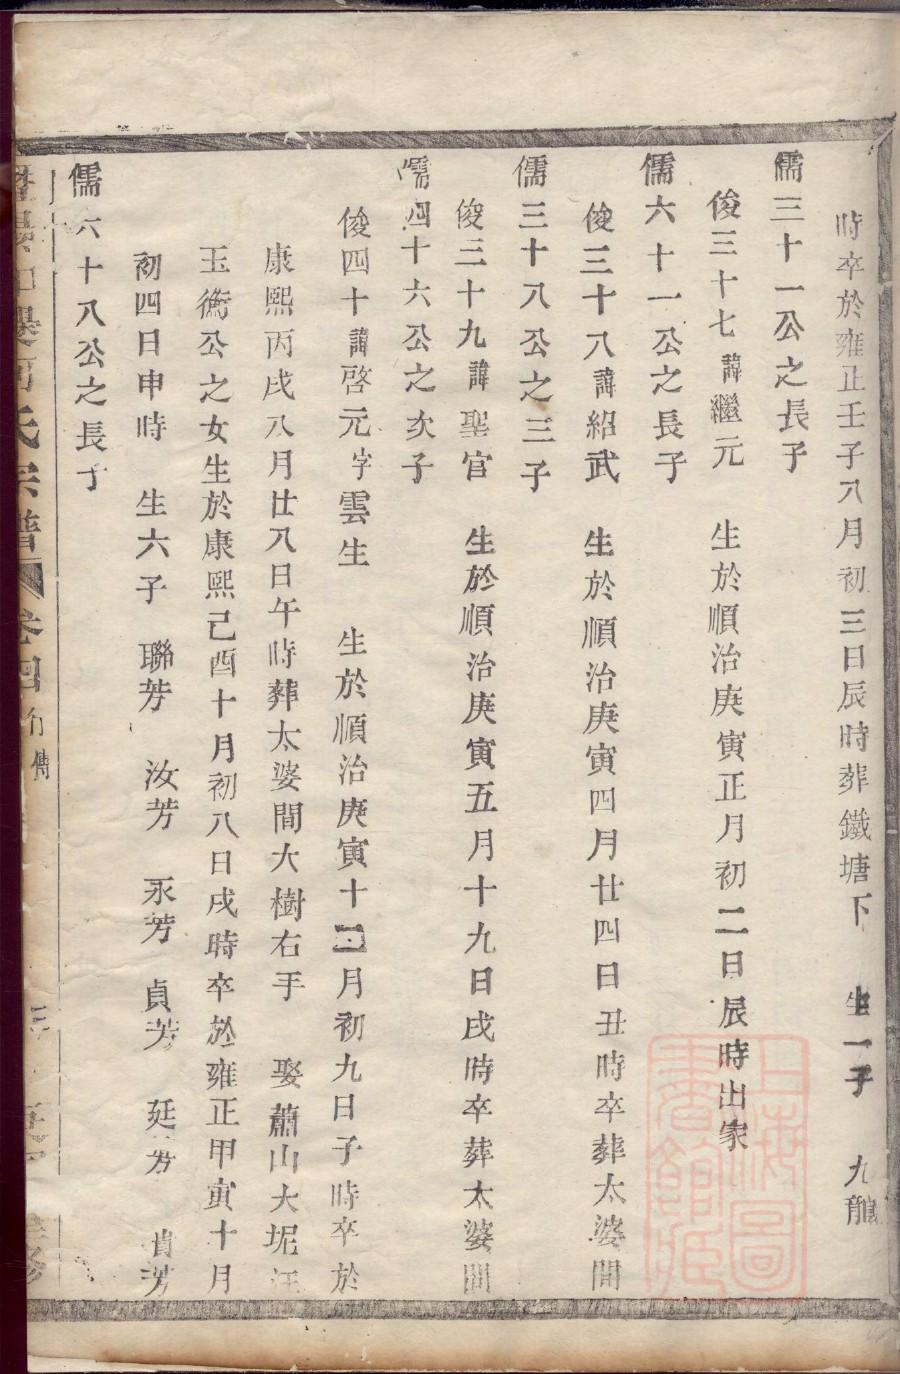 時卒於雍正壬子八月初三日辰時葬鐵塘下　生一子　九龍
儒三十一公之長子
俊三十七諱繼元　生於順治庚寅正月初二日辰時出家
儒六十一公之長子
俊三十八諱紹武　生於順治庚寅四月廿四日丑時卒葬太婆間
儒三十八公之三子
俊三十九諱聖官　生於順治庚寅五月十九日戌時卒葬太婆間
儒四十六公之次子
俊四十諱啓元字雲生　生於順治庚寅十二月初九日子時卒於
康熙丙戌八月廿八日午時葬太婆間大樹右手　娶蕭山大坭汪
玉衡公之女生於康熙己酉十月初八日戌時卒於雍正甲寅十月
初四日申時　生六子　聯芳　汝芳　永芳　貞芳　廷芳　貴芳
儒六十八公之長子
氏宗譜　卷四　行傳
上海圖書館藏